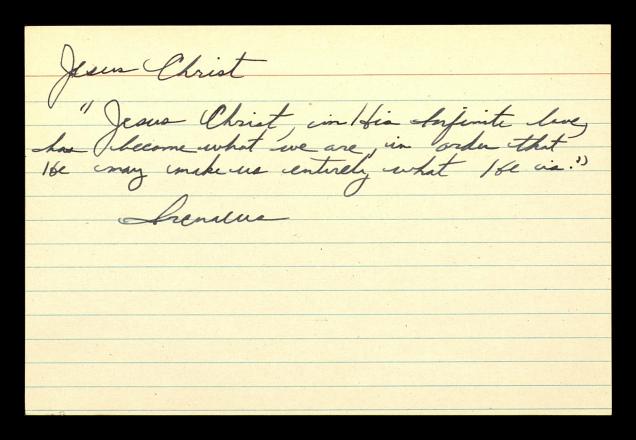 Jesus Christ
"Jesus Christ, in His Infinite love,
has become what we are, in order that
He may make us entirely what He is."
Irenaeus